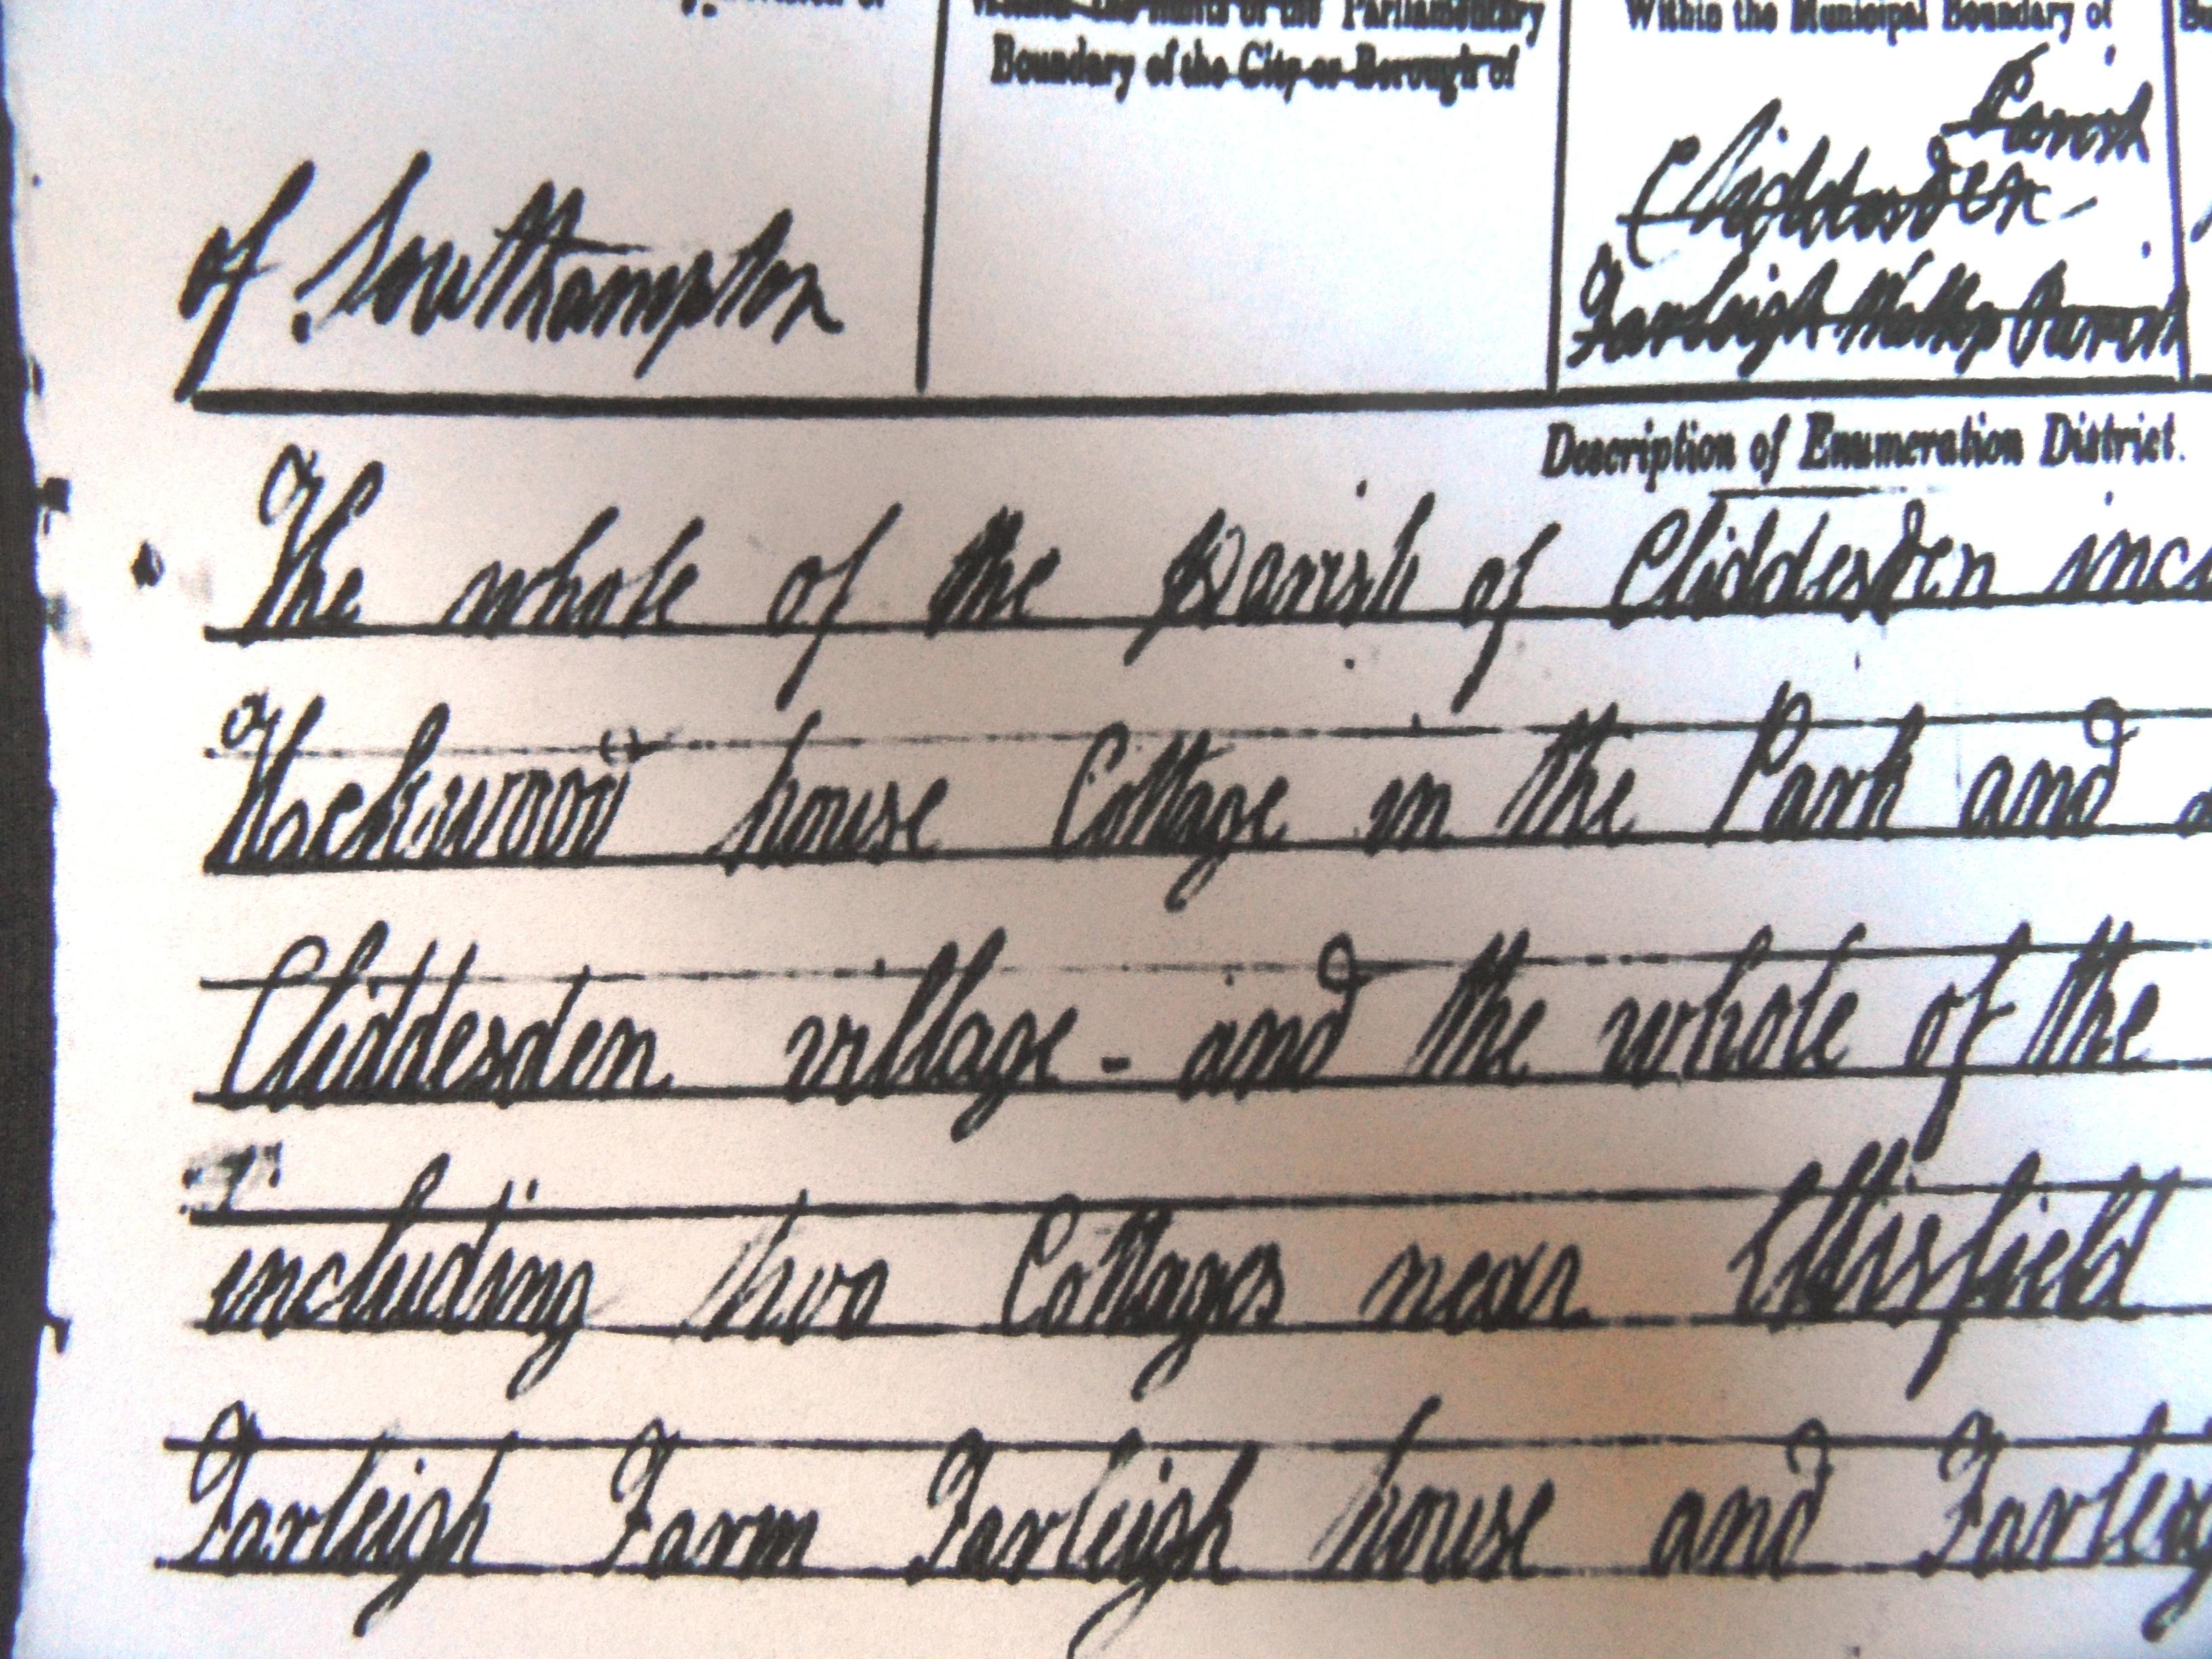 Within the limits of the Parliamentary
Boundary of the City or Borough of
Within the Municipal Boundary of
of Southampton
Parish
Cliddesden
Farleigh Wallop Parish
Description of Enumeration District.
The whole of the Parish of Cliddesden inc
Hackwood house Cottage in the Park and
Cliddesden village - and the whole of the
including two Cottages near Ellisfield
Farleigh Farm Farleigh house and Farleig